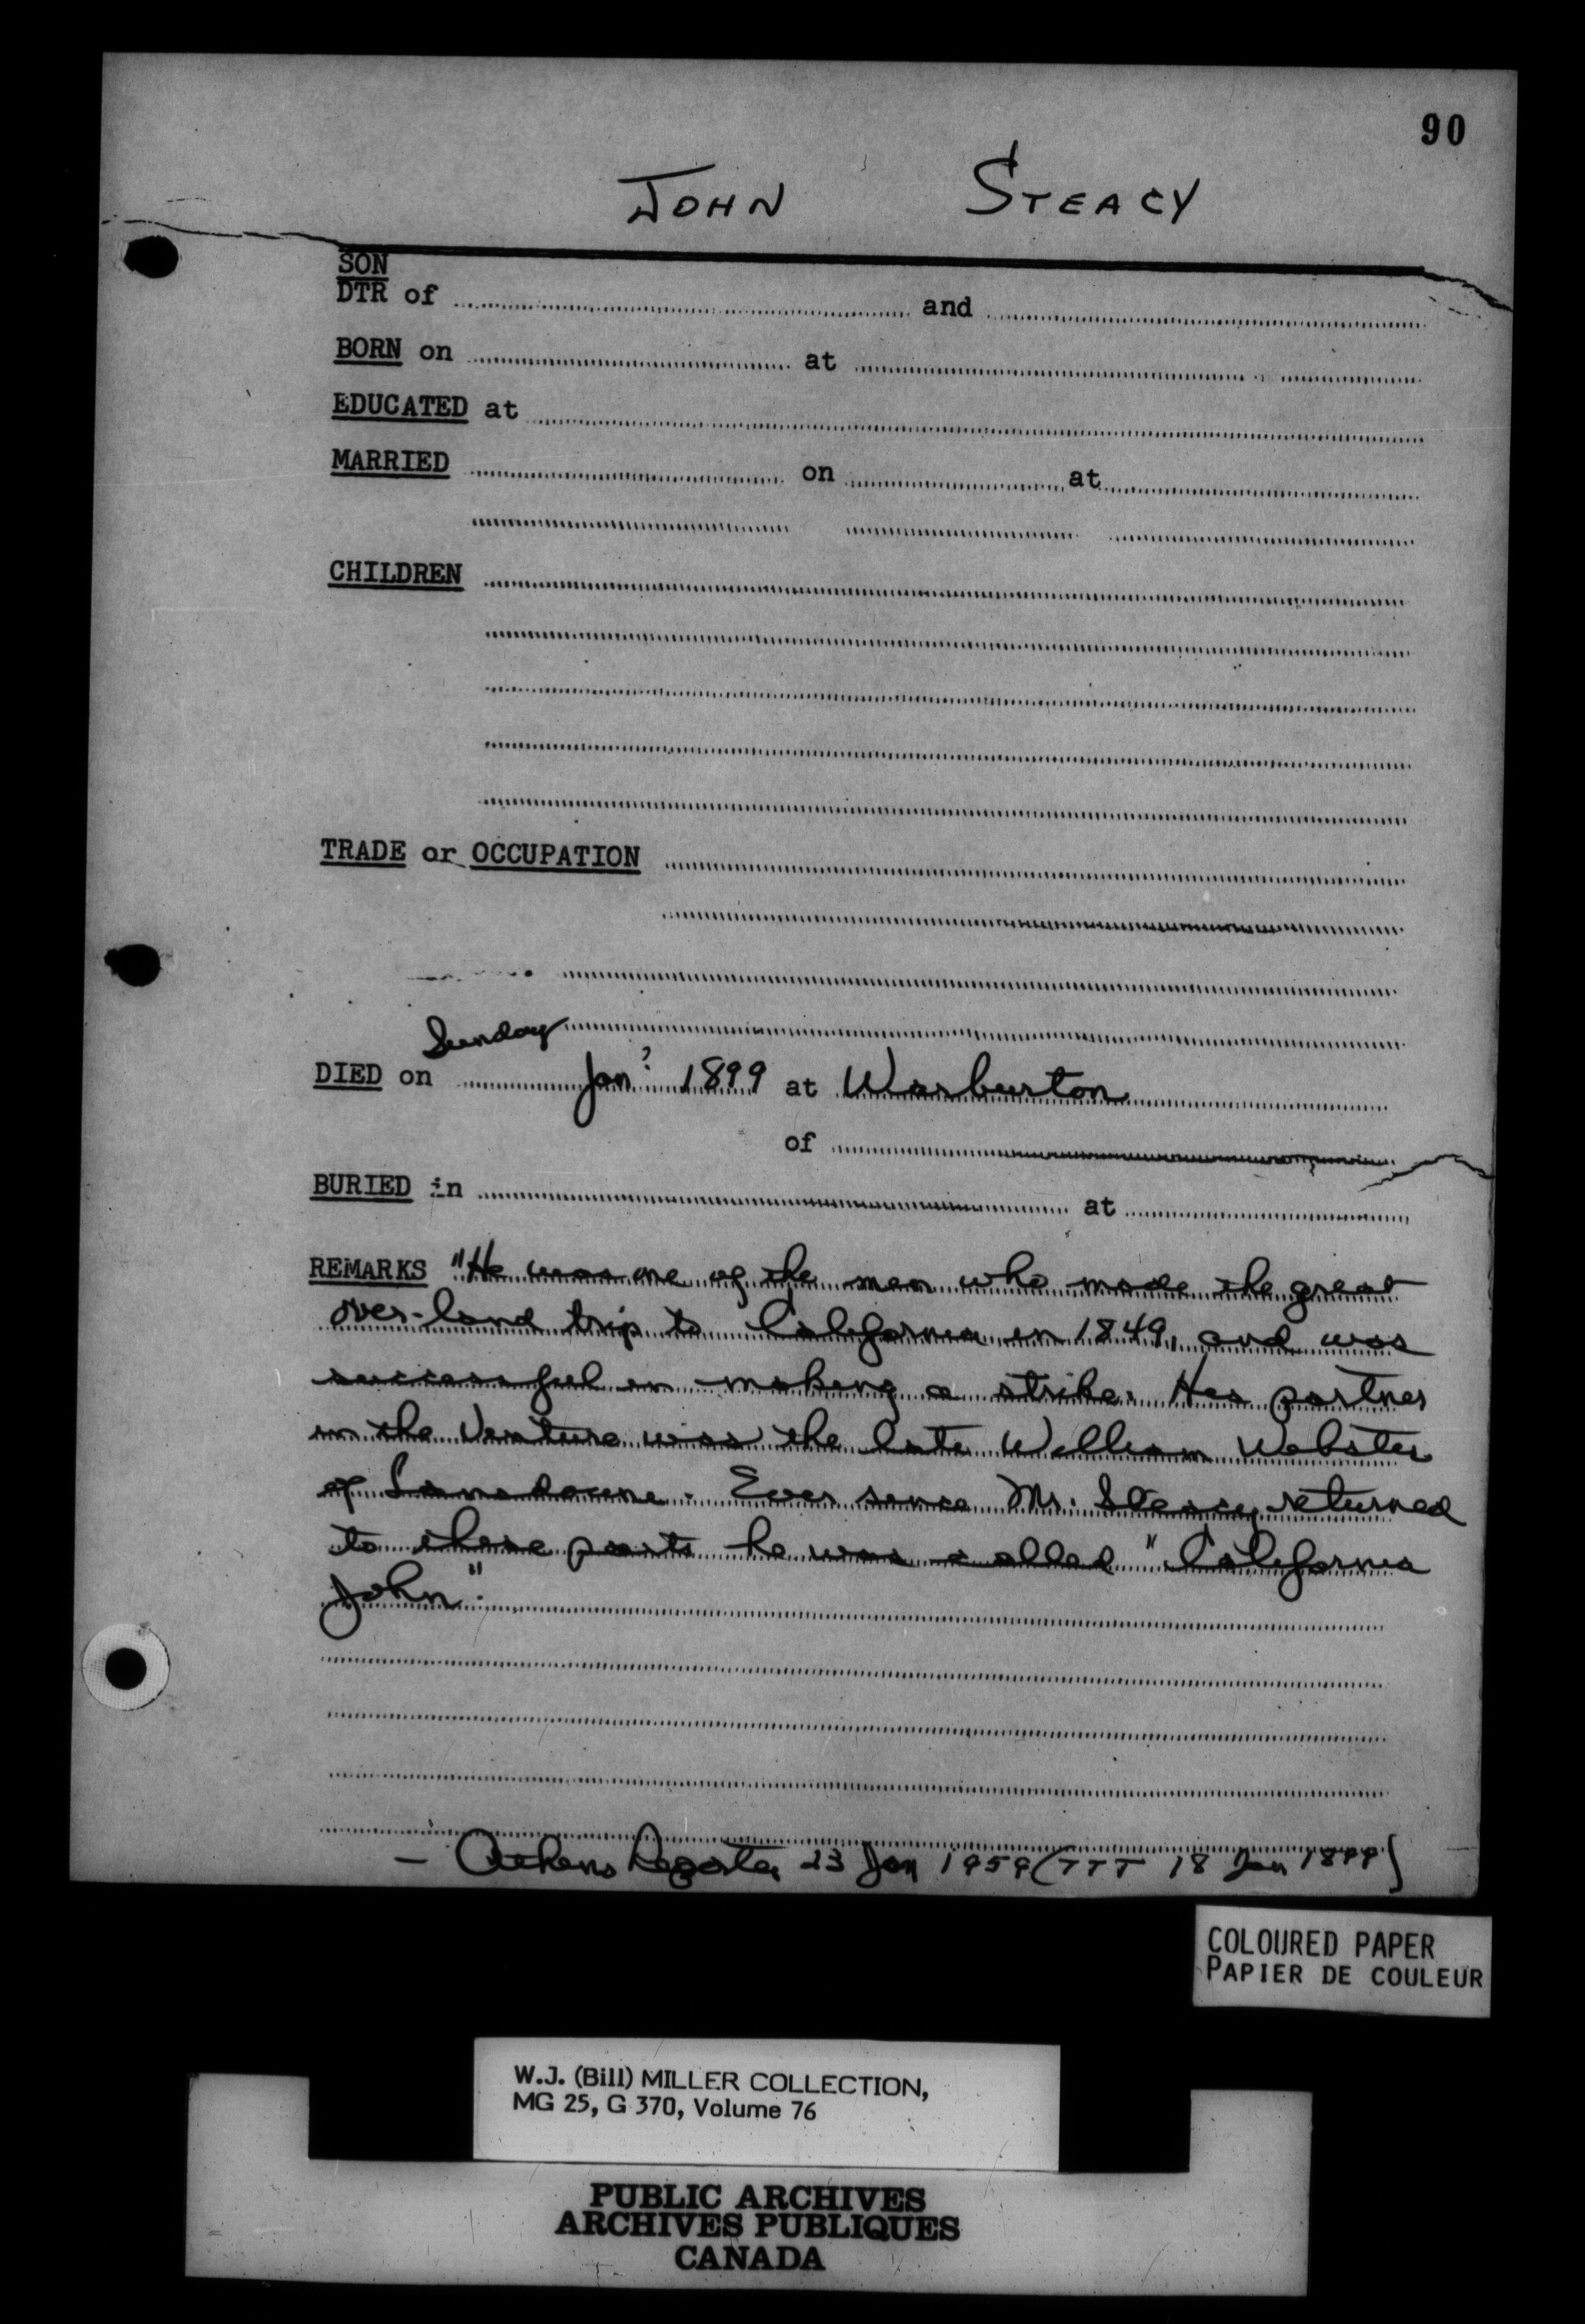 90
JOHN STEACY
SON
DTR of and
BORN on at
EDUCATED at
MARRIED on at
CHILDREN
TRADE or OCCUPATION
Sunday
DIED on Jan ? 1899 at Warburton
of
BURIED in at
REMARKS "He was one of the men who made the great
over-land trip to California in 1849, and was
successful in making a strike. His partner
in the Venture was the late William Webster
of Lansdowne. Ever since Mr. Steacy returned
to these parts he was called "California
John".
- Athens Reporter 23 Jan 1959 (TTT 18 Jan 1899)
COLOURED PAPER
PAPIER DE COULEUR
W.J. (Bill) MILLER COLLECTION,
MG 25, G 370, Volume 76
PUBLIC ARCHIVES
ARCHIVES PUBLIQUES
CANADA